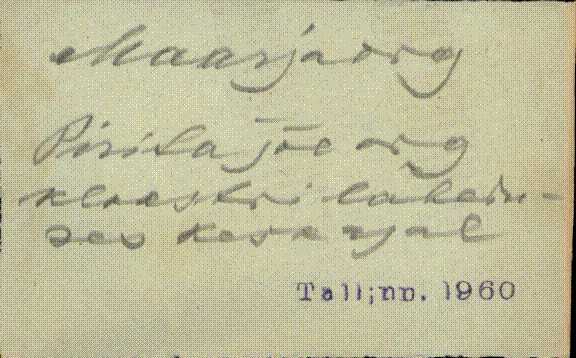 Maarjaorg
Pirita jõe org
kloostri lähedu-
ses
Tallinn. 1960